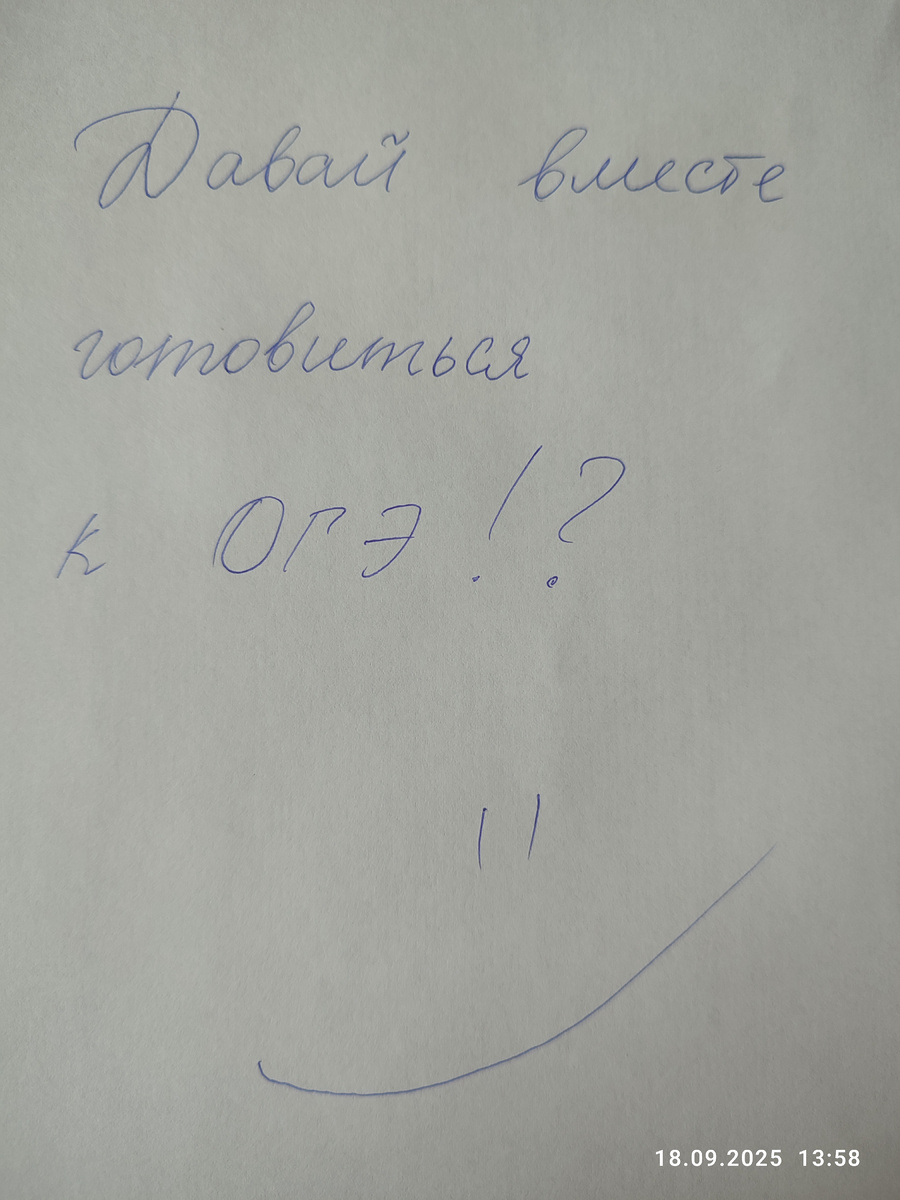 Давай вместе
готовиться
к ОГЭ!?
18.09.2025 13:58